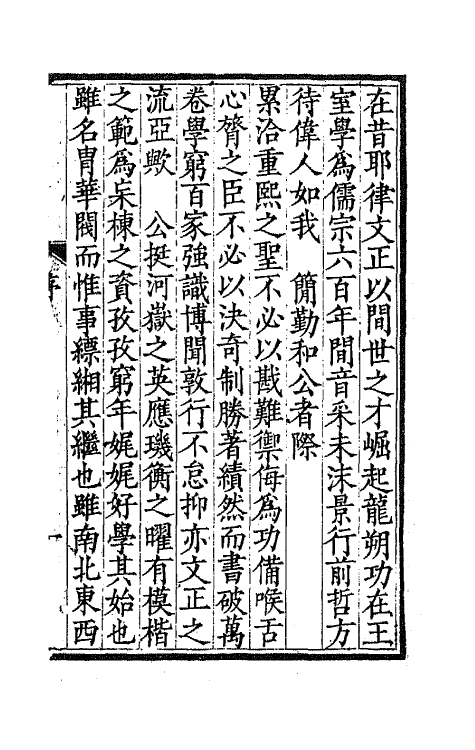 在昔耶律文正以間世之才崛起龍朔功在王
室學為儒宗六百年間音采未沬景行前哲方
待偉人如我　簡勤和公者際
累洽重熙之聖不必以戡難禦侮為功備喉舌
心膂之臣不必以決奇制勝著績然而書破萬
卷學窮百家強識博聞敦行不怠抑亦文正之
流亞歟　公挺河嶽之英應璣衡之曜有模楷
之範為杗棟之資孜孜窮年娓娓好學其始也
雖名胄華閥而惟事縹緗其繼也雖南北東西